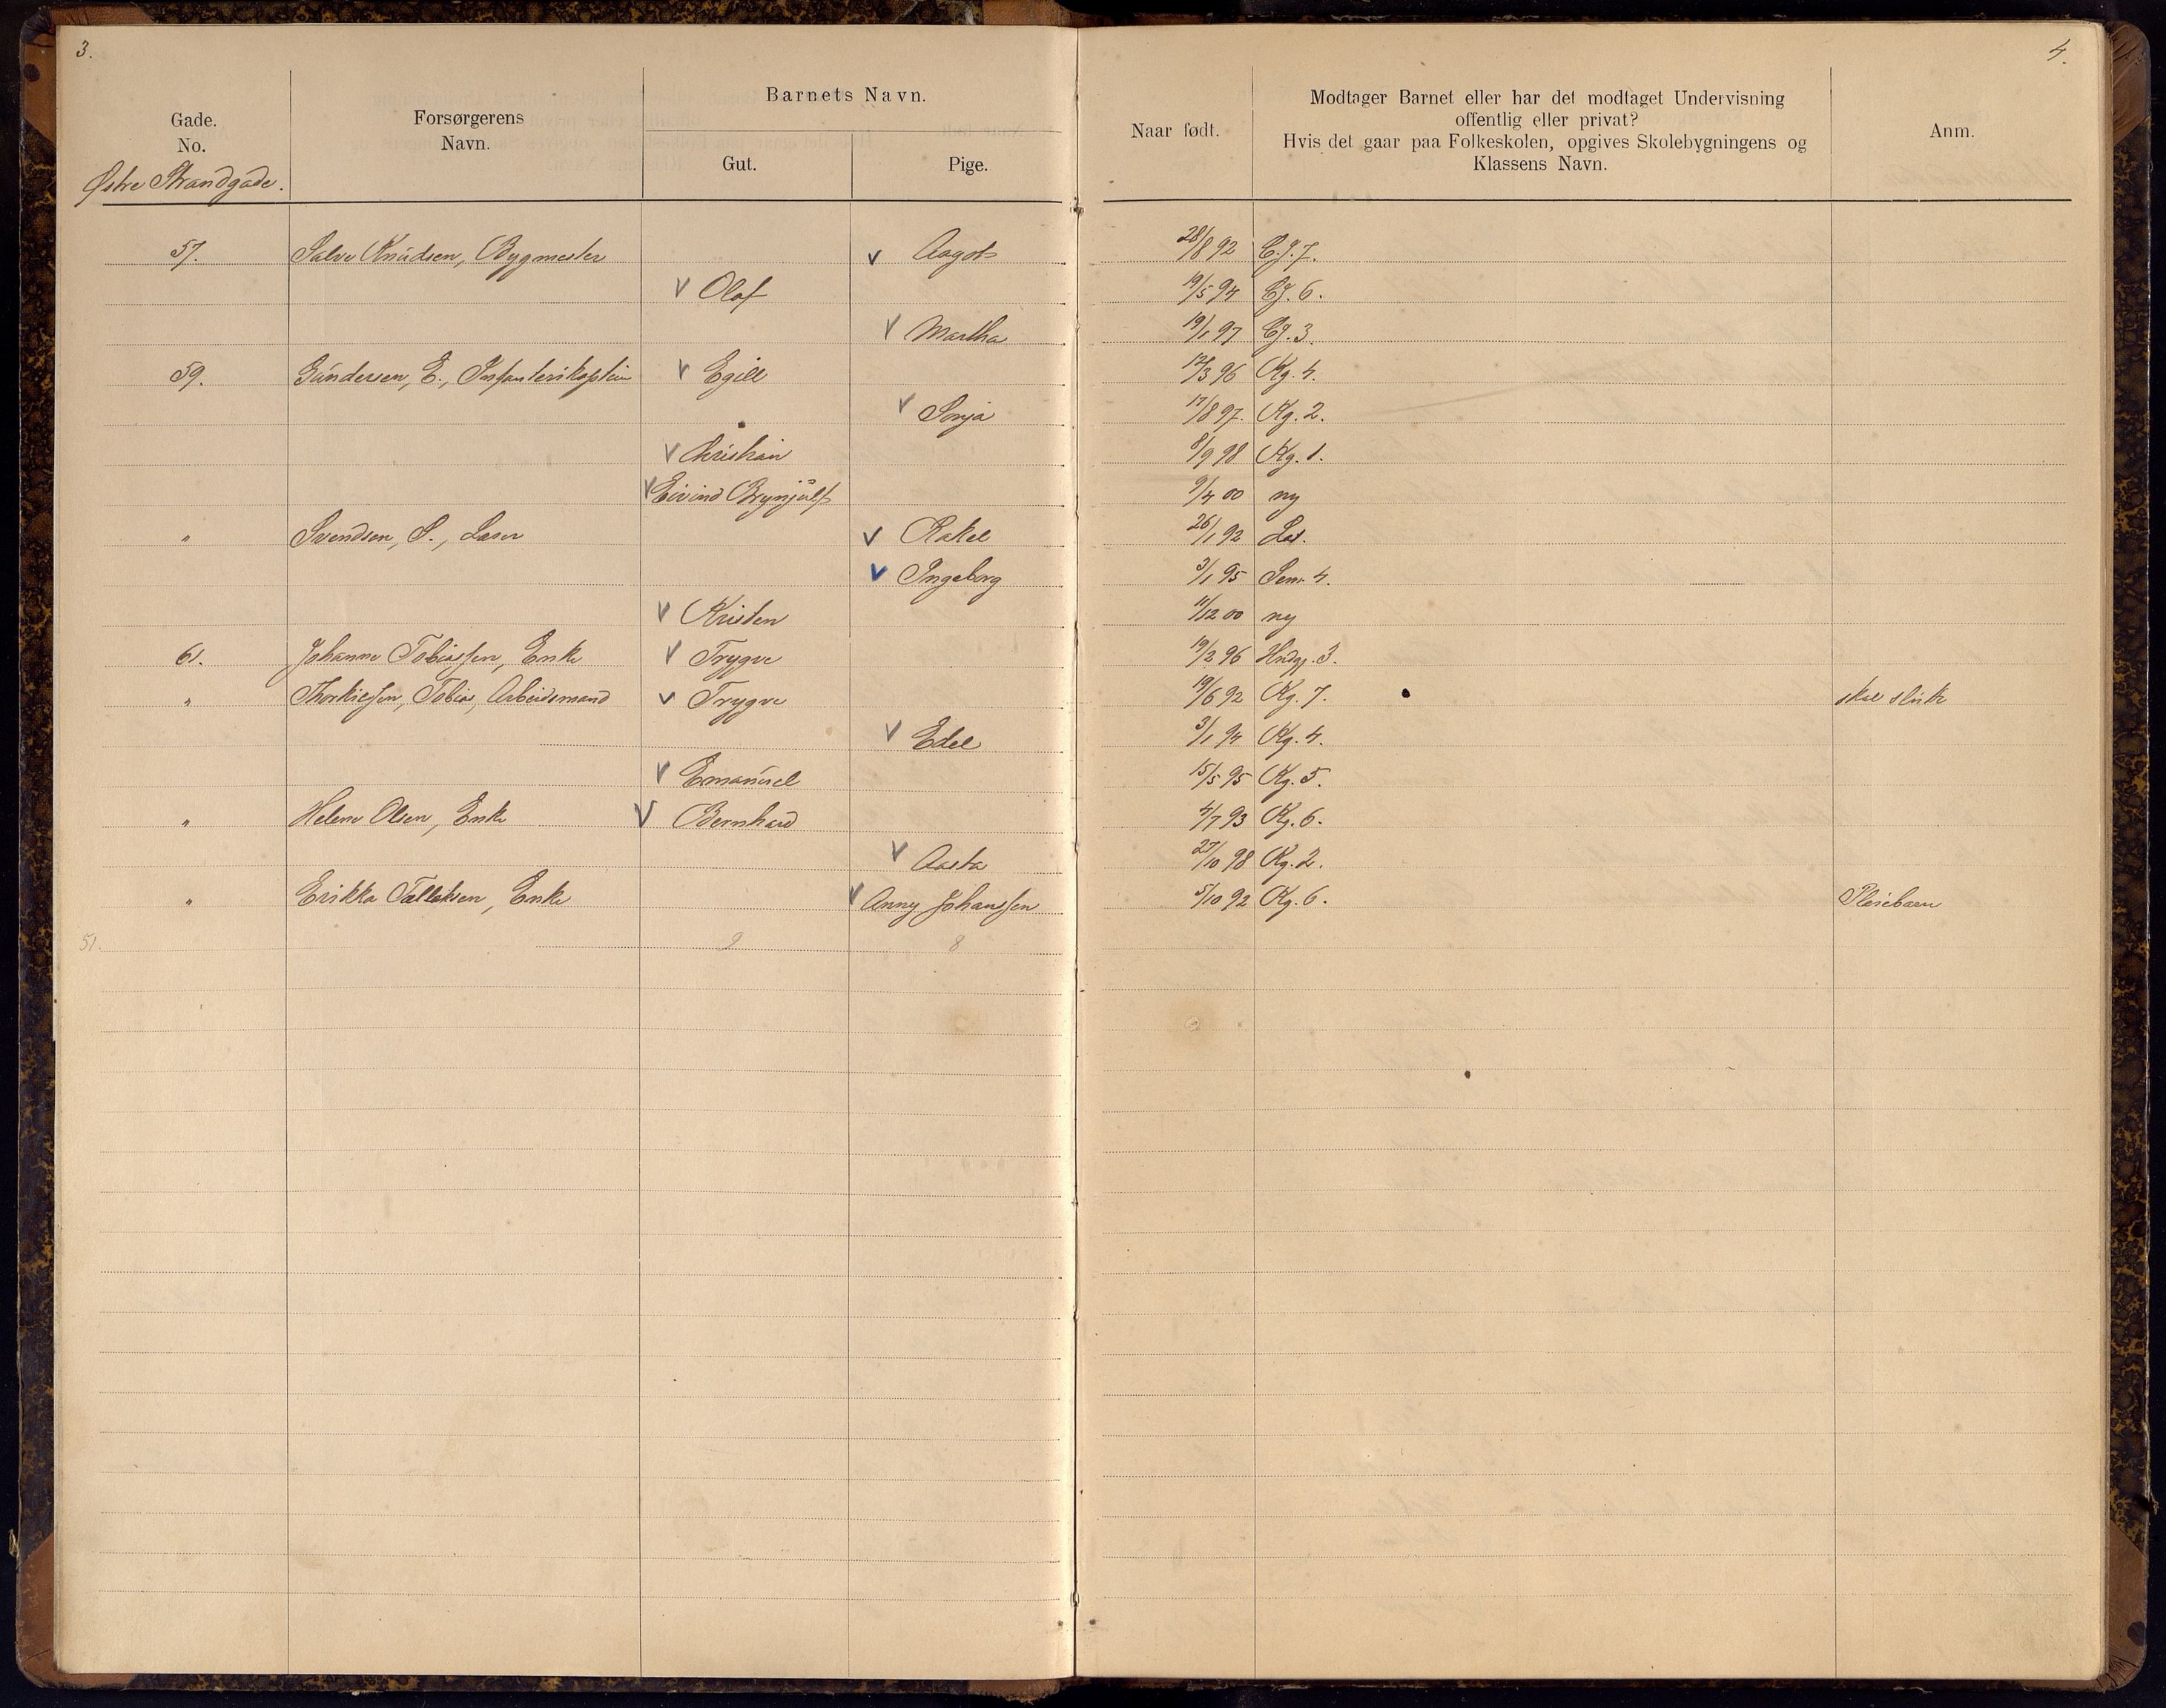 3.
4.
Gade. No. Forsørgerens Navn. Barnets Navn. Gut. Pige. Naar født. Modtager Barnet eller har det modtaget Undervisning offentlig eller privat? Hvis det gaar paa Folkeskolen, opgives Skolebygningens og Klassens Navn. Anm.
Østre Strandgade.
57. Salve Knudsen, Bygmester v Aagot 28/8 92 Cg. 7.
v Olaf 19/5 94 Cg. 6.
v Martha 19/1 97 Cg. 3.
59. Gundersen, E., Infanterikaptein v Egill /3 96 Kg. 4.
v Sonja 17/8 97. Kg. 2.
v Christian 8/9 98 Kg. 1.
v Eivind Brynjulf 9/4 00 ny
" Svendsen, S., Laser v Rakel 26/1 92
v Ingeborg 3/1 95 Sem. 4.
v Kristen 11/12 00 ny
61. Johanne Tobiassen, Enke v Trygve 19/2 96 3.
" Tobias, Arbeidsmand v Trygve 19/6 92 Kg. 7. skal slutte
v Edel 3/1 94 Kg. 4.
v Emanuel 15/5 95 Kg. 5.
" Helene Olsen, Enke v Bernhard 4/7 93 Kg. 6.
v Aasta 27/10 98 Kg. 2.
" Erikka Tallaksen, Enke v Anny Johanssen 5/10 92 Kg. 6. Pleiebarn
51. 9 8